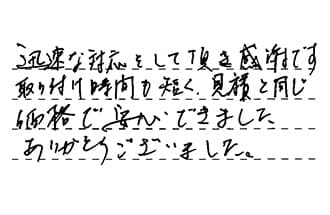 迅速な対応をして頂き感謝です
取り付け時間も短く、見積と同じ
価格で安心できました
ありがとうございました。